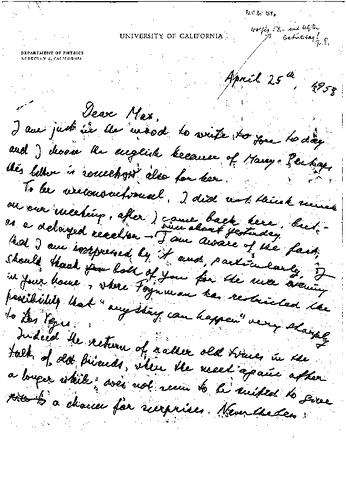 UNIVERSITY OF CALIFORNIA
DEPARTMENT OF PHYSICS
BERKELEY 4, CALIFORNIA
April 25th, 1958
Dear Max,
I am just in the mood to write to you today
and I choose the english because of Mary. Perhaps
this letter is somehow also for her.
To be unconventional, I did not think much
on our meeting, after I came back here, but -
as a delayed reaction - since about yesterday
I am aware of the fact,
that I am impressed by it and, particularly, I
should thank you both of you for the nice evening
in your home, where Feynman has restricted the
possibility that "anything can happen" very sharply
to Las Vegas.
Indeed the return of rather old times in the
talk of old friends, when the meet again after
a longer while, does not seem to be suited to give
a chance for surprises. Nevertheless: